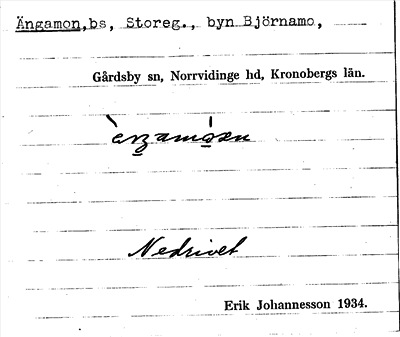 Ängamon,bs, Storeg., byn Björnamo,
Gårdsby sn, Norrvidinge hd, Kronobergs län.
Nedrivet
Erik Johannesson 1934.